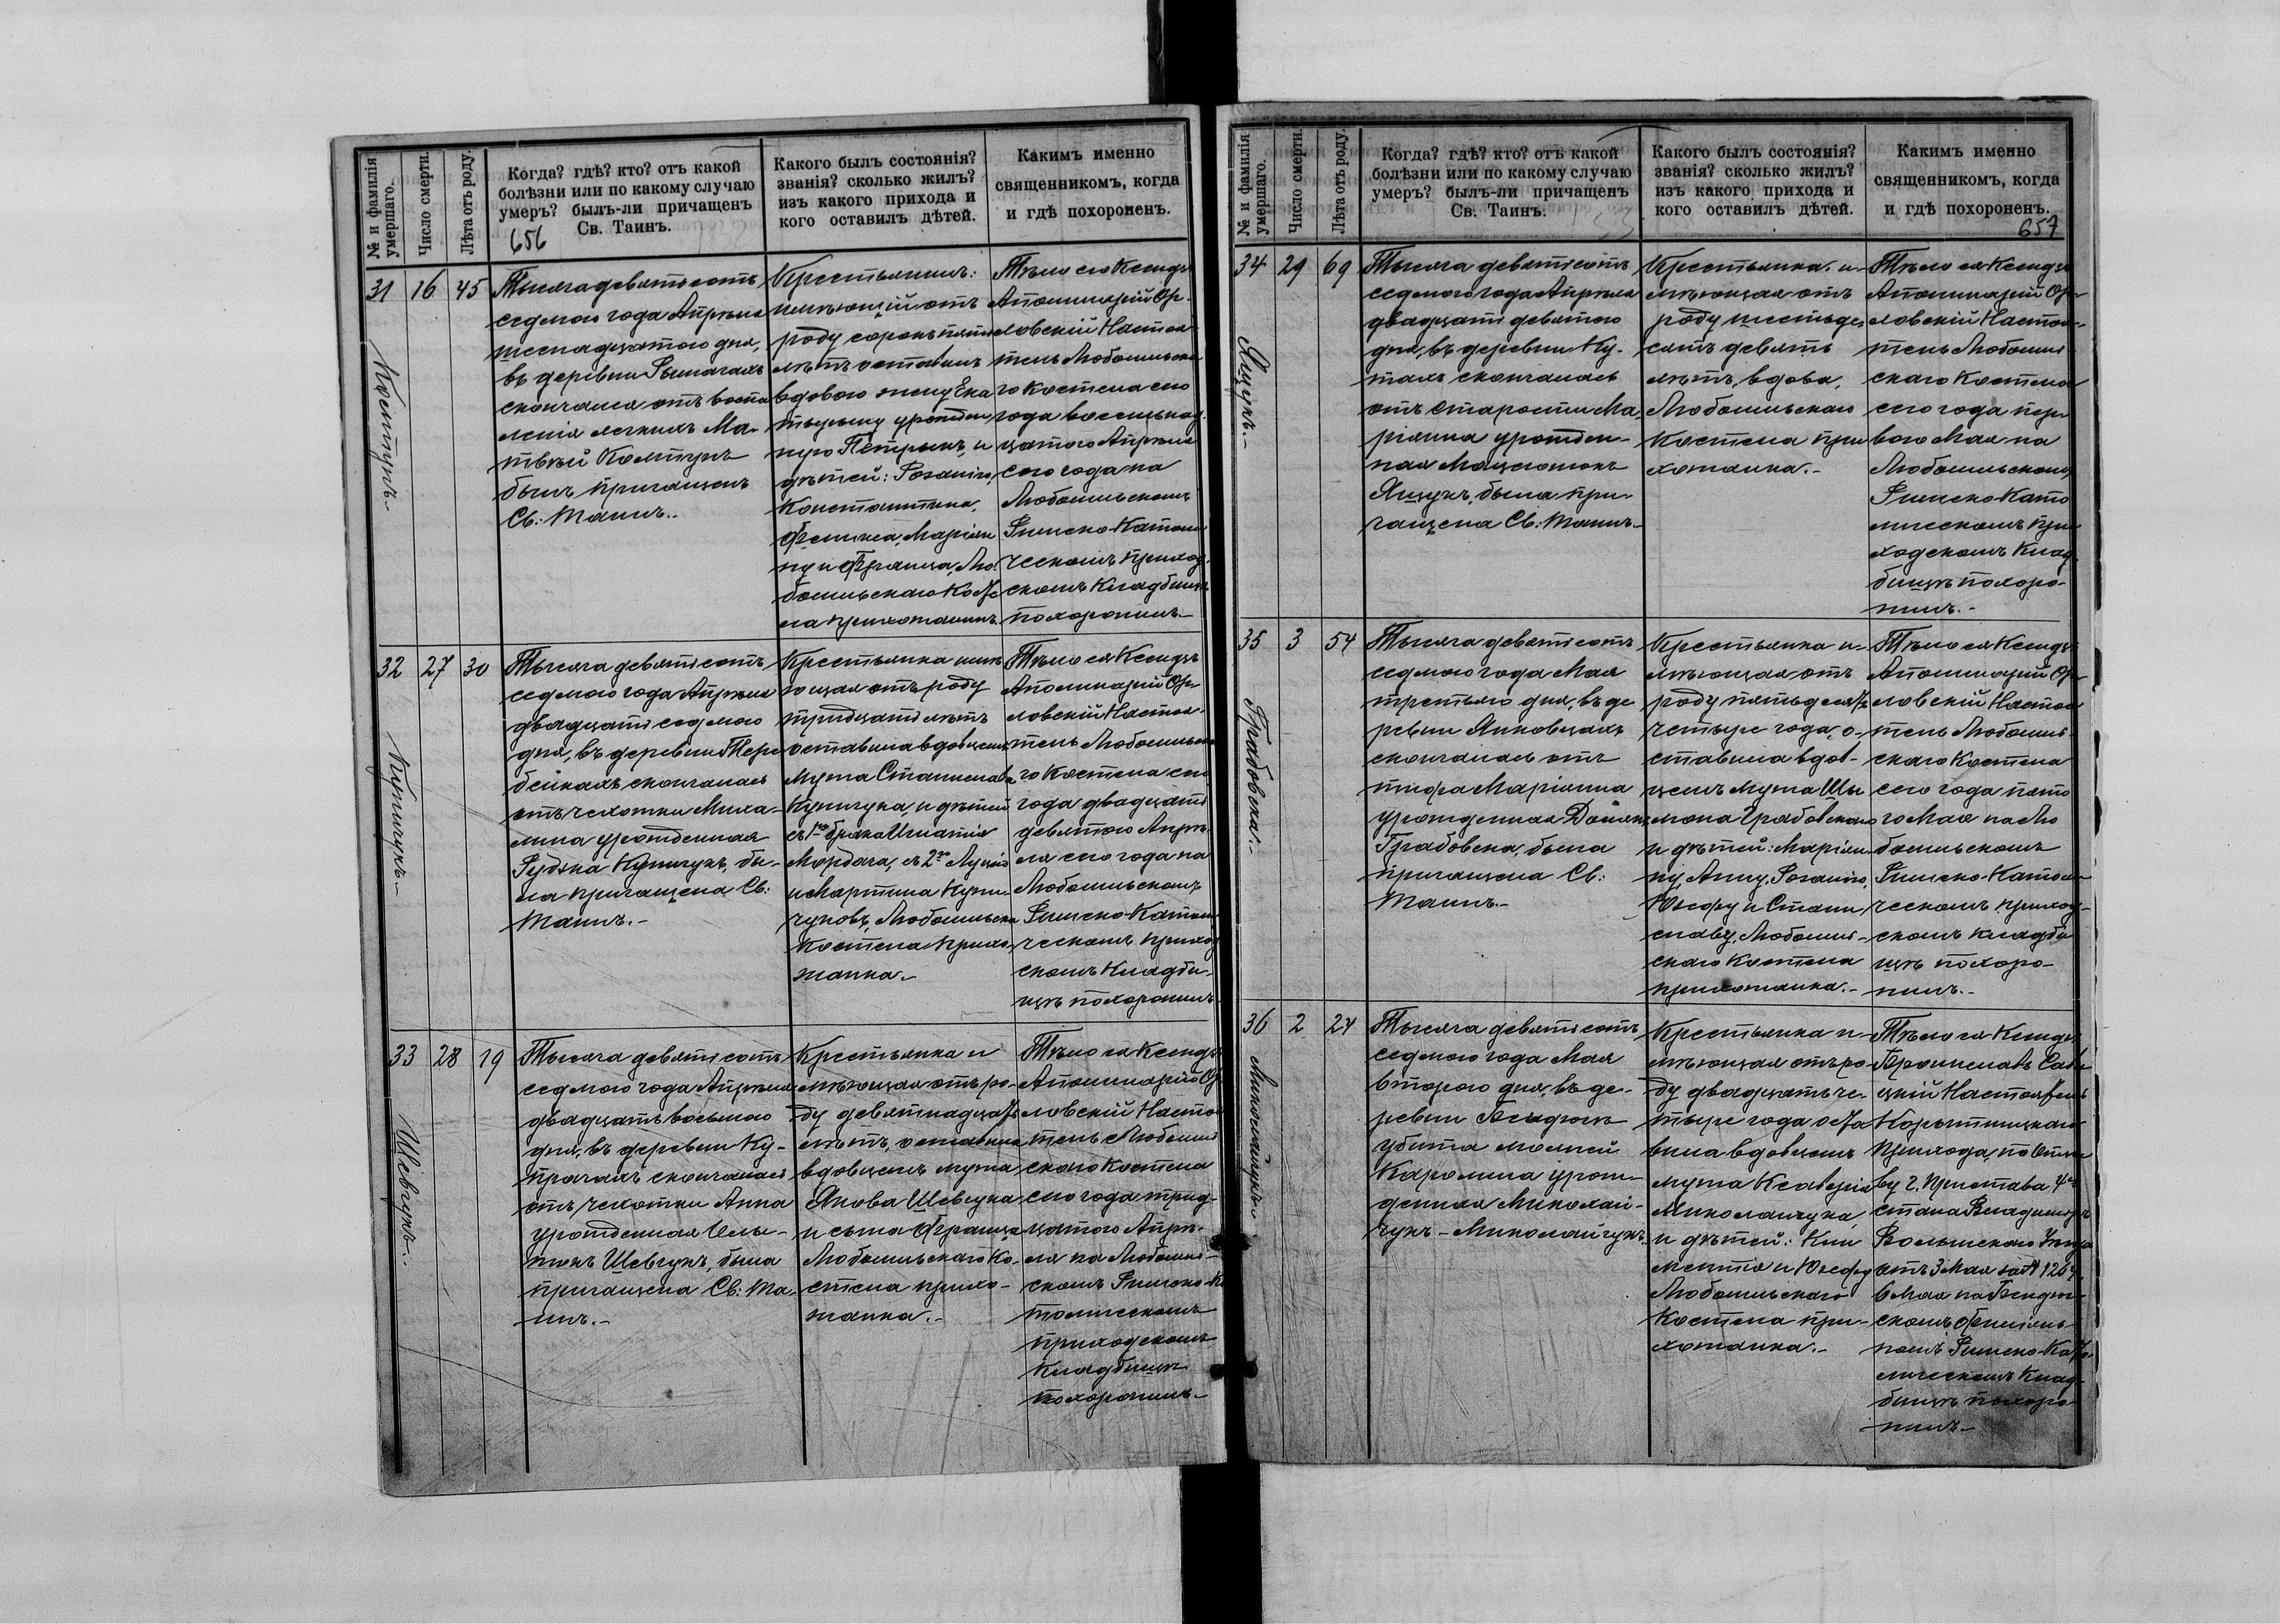 № и фамилія умершаго.
Число смерти.
Лѣта отъ роду.
Когда? гдѣ? кто? отъ какой
болѣзни или по какому случаю
умеръ? былъ-ли причащенъ
Св. Таинъ.
656
Какого былъ состоянія?
званія? сколько жилъ?
изъ какого прихода и
кого оставилъ дѣтей.
Какимъ именно
священникомъ, когда
и гдѣ похороненъ.
31
16
45
Тысяча девятьсотъ
седмого года Апрѣля
шестнадцатого дня,
въ деревни
скончался отъ воспа
ленія легкихъ Ма-
твѣй Колтунъ
былъ причащенъ
Св: Таинъ.
Крестьянинъ:
имѣющій отъ
роду сорокъ пять
лѣтъ оставилъ
вдовою жену Ека
терину урожден
ную Петрукъ, и
дѣтей: Розалію,
Константина,
Феликса, Маріан
ну и Франца, Лю
бомльскаго Косте
ла прихожанинъ.
Тѣло его Ксендзъ
Аполинарій Ор-
ловскій Настоя-
тель Любомльска
го Костела сего
года восемьнад
цатого Апрѣля
сего года на
Любомльскомъ
Римско-Католи
ческомъ приход
скомъ Кладбищѣ
похоронилъ.-
32
27
30
Купчукъ.-
Тысяча девятьсотъ
седмого года Апрѣля
двадцать седмого
дня, въ деревни Тере
бейкахъ скончалась
отъ чехотки Миха-
лина урожденная
Купчукъ, бы-
ла причащена Св:
Таинъ.-
Крестьянка имѣ
ющая отъ роду
тридцать лѣтъ
оставила вдовцемъ
мужа Станислава
Купчука, и дѣтей
съ 1го брака Игнатія
съ 2го Луція
и Мартина Куп-
чуковъ, Любомльска
костела прихо-
жанка.-
Тѣло ея Ксендзъ
Аполинарій Ор-
ловскій Настоя-
тель Любомльска
го Костела сего
года двадцать
девятого Апрѣ-
ля сего года на
Любомльскомъ
Римско-Католи
ческомъ приход
скомъ Кладби-
щѣ похоронилъ
33
28
19
Шевчукъ.-
Тысяча девятьсотъ
седмого года Апрѣля
двадцать восьмого
дня, въ деревни Ку-
скончалась
отъ чехотки Анна
урожденная
Шевчукъ, была
причащена Св: Та-
инъ.-
Крестьянка и
мѣющая отъ ро-
ду девятнадцать
лѣтъ, оставила
вдовцемъ мужа
Якова Шевчука
и сына Франца
Любомльскаго Ко-
стела прихо-
жанка.-
Тѣло ея Ксендзъ
Аполинарій Ор
ловскій Настоя
тель Любомль
скаго Костела
сего года трид-
цатого Апрѣ-
ля на Любомль-
скомъ Римско-Ка
толическомъ
приходскомъ
Кладбищѣ
похоронилъ.-
№ и фамилія умершаго.
Число смерти.
Лѣта отъ роду.
Когда? гдѣ? кто? отъ какой
болѣзни или по какому случаю
умеръ? былъ-ли причащенъ
Св. Таинъ.
Какого былъ состоянія?
званія? сколько жилъ?
изъ какого прихода и
кого оставилъ дѣтей.
Какимъ именно
священникомъ, когда
и гдѣ похороненъ.
657
34
29
69
Ящукъ.-
Тысяча девятьсотъ
седмого года Апрѣля
двадцать девятого
дня, въ деревни Ку-
скончалась
отъ старости Ма-
ріанна урожден-
ная
Ящукъ, была при-
чащена Св: Таинъ.-
Крестьянка и-
мѣющая отъ
роду шестьде
сятъ девять
лѣтъ, вдова,
Любомльскаго
Костела при
хожанка.-
Тѣло ея Ксендзъ
Аполинарій Ор-
ловскій Настоя-
тель Любомль
скаго Костела
сего года пер-
вого Мая на
Любомльскомъ
Римско-Като
лическомъ при
ходскомъ Клад
бищѣ похоро-
нилъ.-
35
3
54
Грабовска.-
Тысяча девятьсотъ
седмого года Мая
третьяго дня, въ де
ревни Янковцахъ
скончалась отъ
тифа Маріанна
урожденная
Грабовска, была
причащена Св:
Таинъ.-
Крестьянка и-
мѣющая отъ
роду пятьдесятъ
четыре года, о-
ставила вдов-
цемъ мужа Шы
мона Грабовскаго
и дѣтей: Маріан
ну, Анну, Розалію,
Юзефу и Стани
славу, Любомль-
скаго Костела
прихожанка.-
Тѣло ея Ксендзъ
Аполинарій Ор-
ловскій Настоя
тель Любомль
скаго Костела
сего года пято
го Мая на Лю
бомльскомъ
Римско-Католи-
ческомъ приход-
скомъ кладби
щѣ похоро-
нилъ.-
36
2
24
Миколайчукъ.-
Тысяча девятьсотъ
седмого года Мая
второго дня, въ де-
ревни Бендюгѣ
убита молніей
Каролина урож-
денная Миколай-
чукъ - Миколайчукъ.
Крестьянка и-
мѣющая отъ ро-
ду двадцать че-
тыре года оста
вила вдовцемъ
мужа Ксаверія
Миколайчука,
и дѣтей: Кли
ментія и Юзефу
Любомльскаго
Костела при-
хожанка.-
Тѣло ея Ксендзъ
Брониславъ
Настоятель
Корытницкаго
прихода, по отзы
ву г. Пристава 4го
стана Владимиръ
Волынскаго Уѣзда
отъ 3 Мая за №
6 Мая на Бендюг-
скомъ филіаль-
номъ Римско-Като-
лическомъ Клад-
бищѣ похоро-
нилъ.-